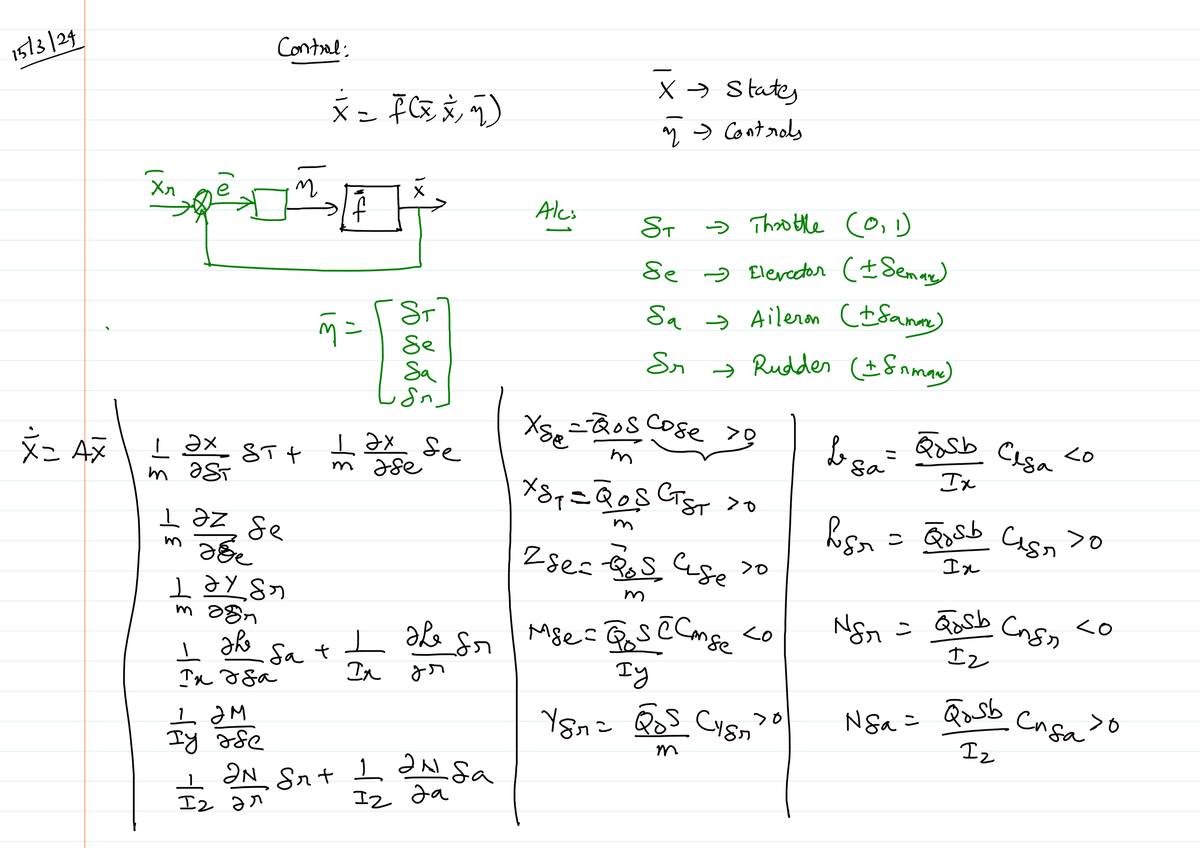 15/3/24
Control:
ẋ̄ = f̄(x̄, ẋ̄, η̄)
x̄ → States
η̄ → Controls
x̄r ē η̄ f̄ x̄
A/c:
δT → Throttle (0, 1)
δe → Elevator (± δemax)
δa → Aileron (± δamax)
δr → Rudder (± δrmax)
η̄ = [δT δe δa δr]
ẋ̄ = Ax̄
1/m ∂X/∂δT δT + 1/m ∂X/∂δe δe
1/m ∂Z/∂δe δe
1/m ∂Y/∂δr δr
1/Ix ∂L/∂δa δa + 1/Ix ∂L/∂r δr
1/Iy ∂M/∂δe
1/Iz ∂N/∂r δr + 1/Iz ∂N/∂a δa
Xδe = -Q̄0S/m CDδe > 0
XδT = Q̄0S/m CTδT > 0
Zδe = -Q̄0S/m CLδe > 0
Mδe = Q̄0Sc̄/Iy Cmδe < 0
Yδr = Q̄0S/m Cyδr > 0
Lδa = Q̄0Sb/Ix Clδa < 0
Lδr = Q̄0Sb/Ix Clδr > 0
Nδr = Q̄0Sb/Iz Cnδr < 0
Nδa = Q̄0Sb/Iz Cnδa > 0